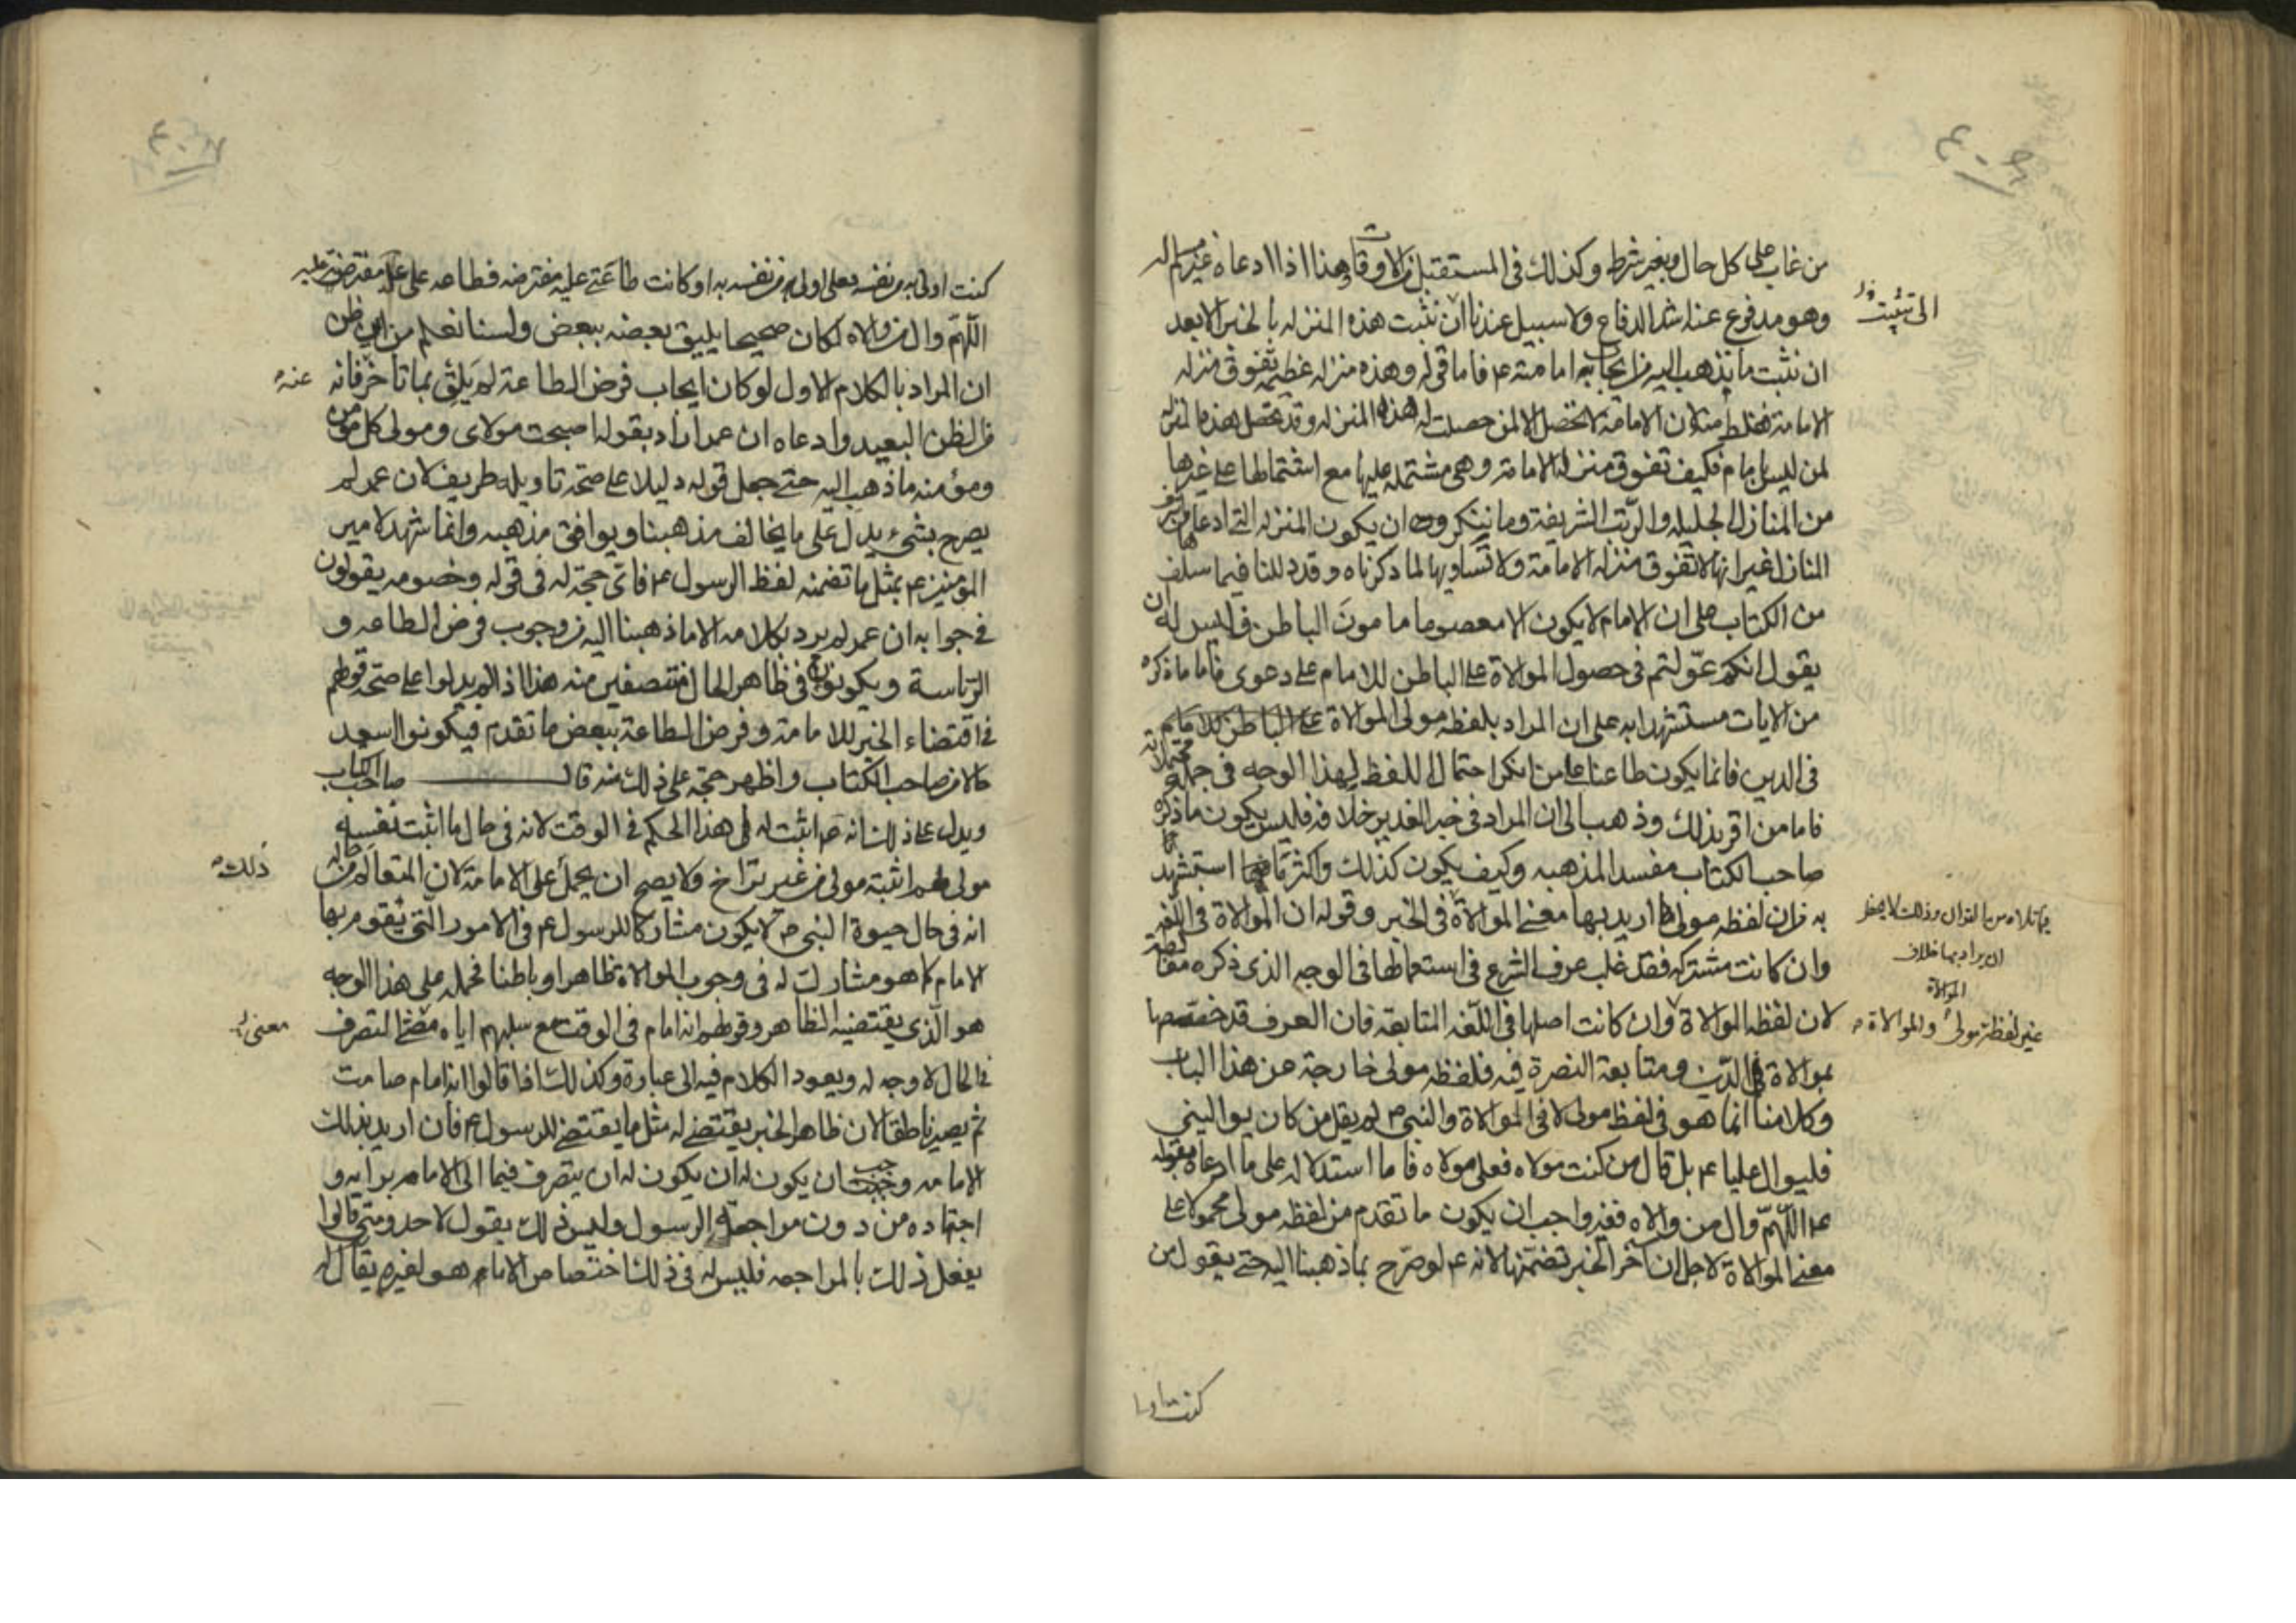 من غاب على كل حال وبغير شرط وكذلك في المستقبل من الاوقات وهذا اذا ادعاه غير مسلم له
وهو مدفوع عنه اشد الدفاع ولا سبيل عندنا الى ان نثبت هذه المنزله بالخبر الا بعد
ان نثبت ما يذهب اليه من ايجابه امامته ع فاما قوله وهذه منزله عظيمة تفوق منزله
الامامة فغلط منه لان الامامة لا تحصل الا لمن حصلت له هذه المنزله وقد تحصل هذه المنزله
لمن ليس بامام فكيف تفوق منزله الامامة وهي مشتمله عليها مع اشتمالها على غيرها
من المنازل الجليله والرتب الشريفة وما ننكر ان يكون المنزله التي ادعاها من اشرف
المنازل غير انها لا تفوق منزله الامامة ولا تساويها لما ذكرناه وقد دللنا فيما سلف
من الكتاب على ان الامام لا يكون الا معصوما مامون الباطن فليس له ان
يقول انكم عولتم في حصول الموالاة على الباطن للامام على دعوى فاما ما ذكره
من الايات مستشهدا به على ان المراد بلفظه مولى الموالاة
في الدين فانما يكون طاعنا على من انكر احتمال اللفظ لهذا الوجه في جملة محتملاته
فاما من اقر بذلك وذهب الى ان المراد في خبر الغدير خلافه فليس يكون ما ذكره
صاحب الكتاب مفسدا لمذهبه وكيف يكون كذلك واكثر ما فيما استشهد
به من ان لفظه مولى اريد بها معنى الموالاة في الخبر وقوله ان الموالاة في اللغة
وان كانت مشتركه فقد غلب عرف الشرع في استعمالها في الوجه الذي ذكره
لان لفظه الموالاة وان كانت اصلها في اللغه المتابعه فان العرف قد خصصها
بموالاة في الدين ومتابعة النصرة فيه فلفظه مولى خارجة عن هذا الباب
وكلامنا انما هو في لفظ مولى لا في الموالاة والنبي ص لم يقل من كان يواليني
فليوال عليا ع بل قال من كنت مولاه فعلي مولاه فاما استدلاله على ما ادعاه بقوله
ع اللهم وال من والاه فغير واجب ان يكون ما تقدم من لفظه مولى محمولا على
معنى الموالاة لاجل ان آخر الخبر تضمنها لانه ع لو صرح بما ذهبنا اليه حتى يقول من
الى تثبيت
مما تلاه من القران وذلك لا يحظر
ان يراد بها خلاف
الموالاة
غير لفظة مولى والموالاة
كنت اولى
كنت اولى به من نفسه فعلي اولى به من نفسه او كانت طاعتي عليه مفترضه فطاعه علي عليه مفترضة
اللهم وال من والاه لكان صحيحا يليق بعضه ببعض ولسنا نعلم من اين ظن
ان المراد بالكلام الاول لو كان ايجاب فرض الطاعة لم يلق بما تاخر فانه
من الظن البعيد وادعاه ان عمر اراد بقوله اصبحت مولاي ومولى كل مؤمن
ومؤمنه ما ذهب اليه حتى جعل قوله دليلا على صحة تاويله طريف لان عمر لم
يصرح بشيء يدل على ما يخالف مذهبنا ويوافق مذهبه وانما شهد لامير
المؤمنين ع بمثل ما تضمنه لفظ الرسول ع فاي حجة له في قوله وخصومه يقولون
في جوابه ان عمر لم يرد بكلامه الا ما ذهبنا اليه من وجوب فرض الطاعه و
الرئاسة ويكونون في ظاهر الحال منتصفين منه هذا اذا لم يدلوا على صحة قولهم
في اقتضاء الخبر للامامة وفرض الطاعة ببعض ما تقدم فيكونوا اسعد
حالا من صاحب الكتاب واظهر حجة على ذلك منه قال صاحب الكتاب
ويدل على ذلك انه ص اثبت له في هذا الحكم في الوقت لانه في حال ما اثبت نفسه
مولى لهم اثبته مولى من غير تراخ ولا يصح ان يحمل على الامامة لان المتعالم من حاله
انه في حال حيوة النبي ص لا يكون مشاركا للرسول ع في الامور التي يقوم بها
الامام كما هو مشارك له في وجوب الموالاة ظاهرا وباطنا فحمله على هذا الوجه
هو الذي يقتضيه الظاهر وقولهم انه امام في الوقت مع سلبهم اياه التصرف
في الحال لا وجه له ويعود الكلام فيه الى عبارة وكذلك اذا قالوا انه امام صامت
ثم يصير ناطقا لان ظاهر الخبر يقتضي له مثل ما يقتضي للرسول ع فان اريد بذلك
الامامه وجب ان يكون له ان يتصرف فيما الى الامام برايه و
اجتهاده من دون مراجعة الرسول وليس ذلك يقول لاحد ومتى قالوا
يفعل ذلك بالمراجعه فليس له في ذلك اختصاص الا ما هو لغيره يقال له
عنه
ذلك
معنى